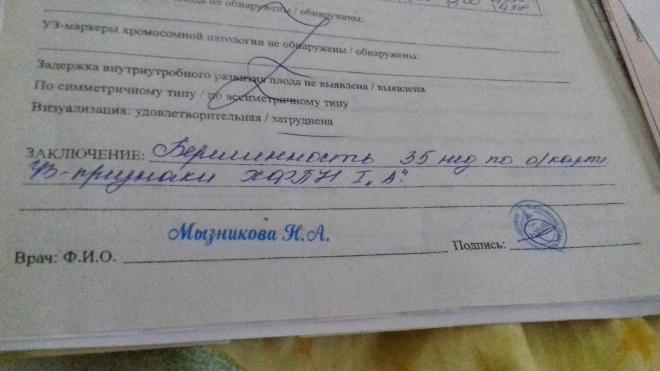 плода не обнаружены / обнаружены:
УЗ-маркеры хромосомной патологии не обнаружены / обнаружены:
Задержка внутриутробного развития плода не выявлена / выявлена
По симметричному типу / по ассиметричному типу
Визуализация: удовлетворительная / затруднена
ЗАКЛЮЧЕНИЕ: Беременность 35 нед по о/карте.
УЗ-признаки ХФПН I "А"
Мызникова Н.А.
Врач: Ф.И.О. Подпись: